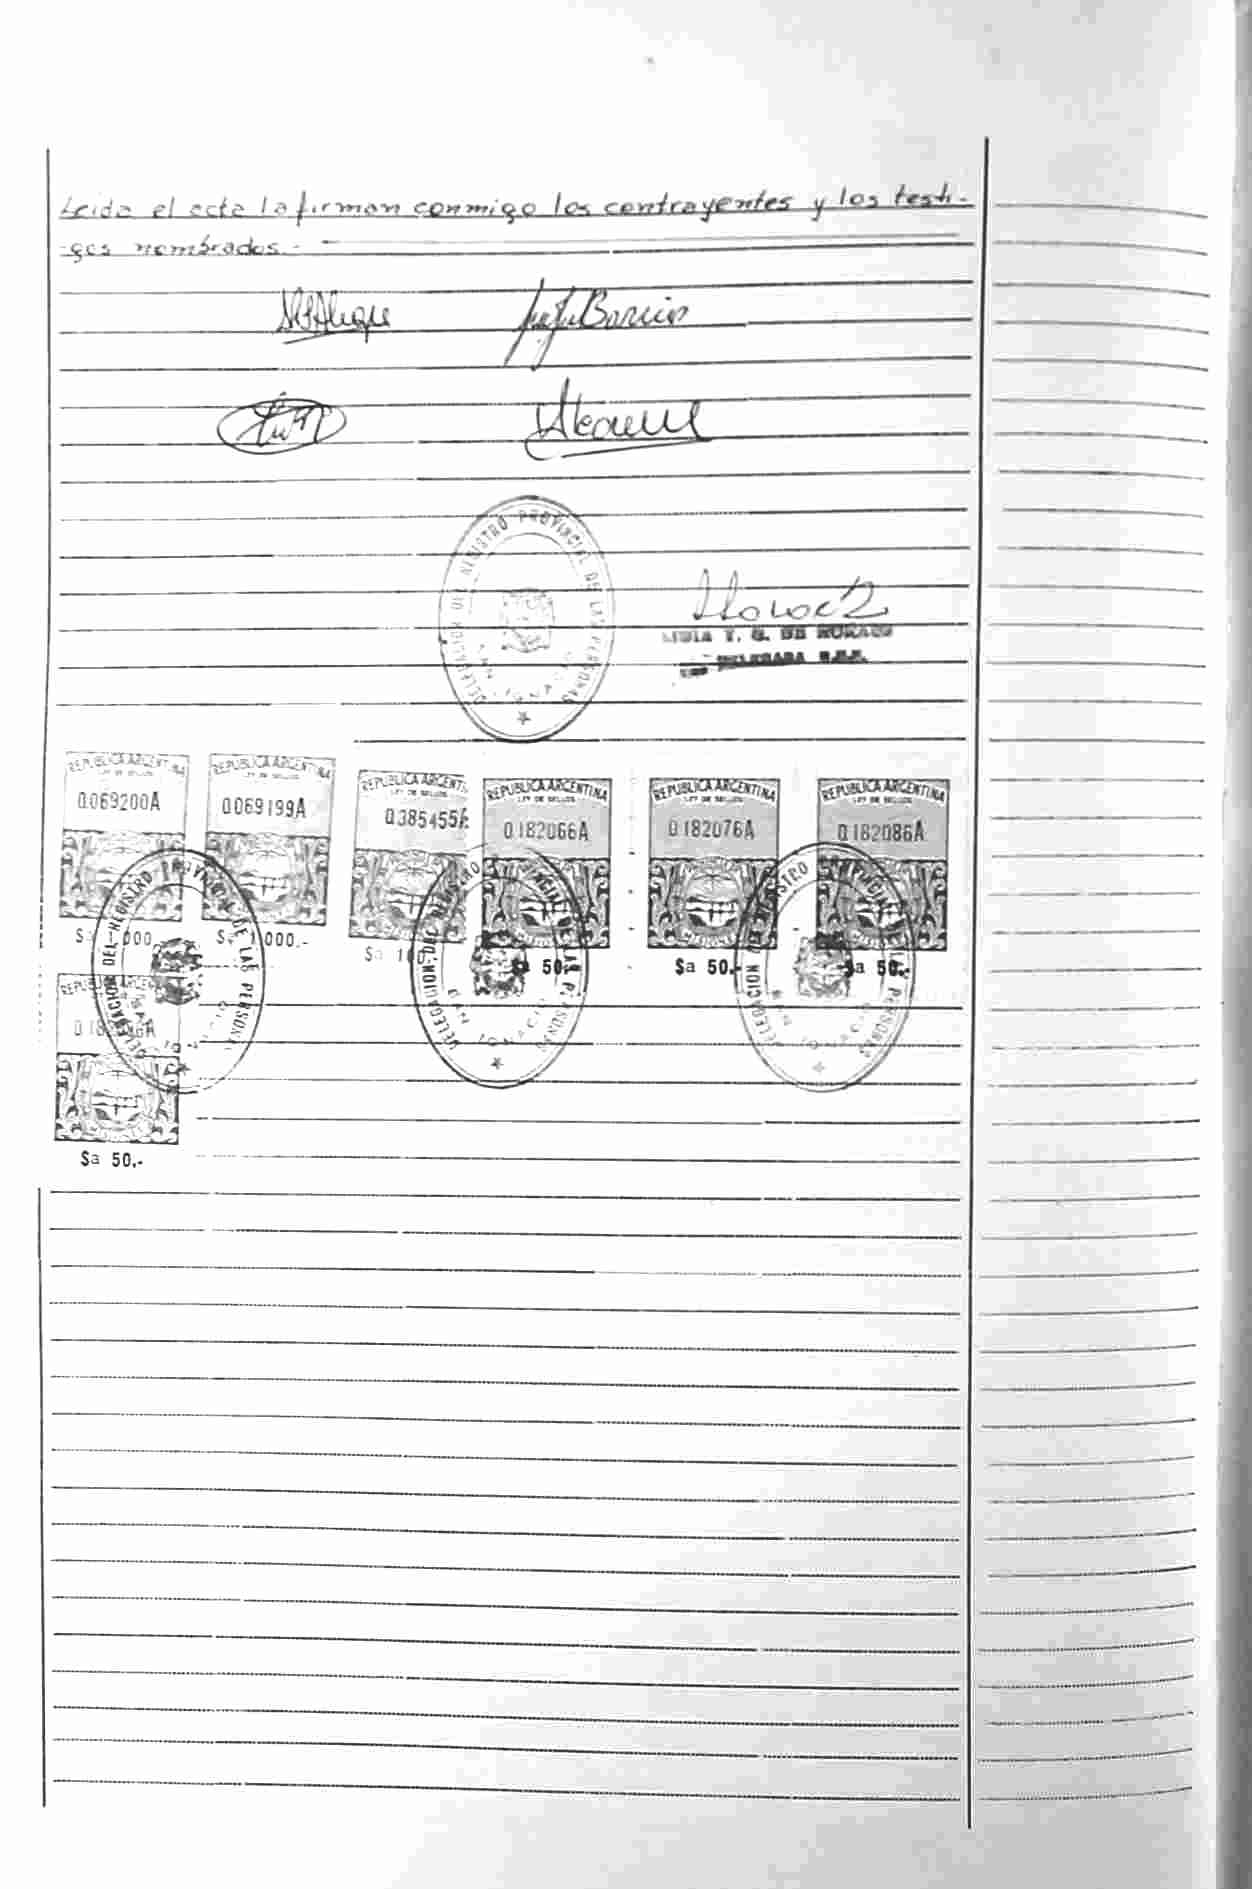 Leida el acta la firman conmigo los contrayentes y los testi-
-gos nombrados.-
Barrios
DELEGACION DEL REGISTRO PROVINCIAL DE LAS PERSONAS
SAN IGNACIO
LIDIA T. G. DE
DELEGADA
REPUBLICA ARGENTINA REPUBLICA ARGENTINA REPUBLICA ARGENTINA REPUBLICA ARGENTINA REPUBLICA ARGENTINA REPUBLICA ARGENTINA
LEY DE SELLOS LEY DE SELLOS LEY DE SELLOS LEY DE SELLOS LEY DE SELLOS LEY DE SELLOS
0069200A 0069199A 0385455A 0182066A 0182076A 0182086A
1.000.- $a 50.- $a 50.- $a 50.-
DELEGACION DEL REGISTRO PROVINCIAL DE LAS PERSONAS
SAN IGNACIO
DELEGACION DEL REGISTRO PROVINCIAL DE LAS PERSONAS
SAN IGNACIO
DELEGACION DEL REGISTRO PROVINCIAL DE LAS PERSONAS
SAN IGNACIO
REPUBLICA ARGENTINA
$a 50.-